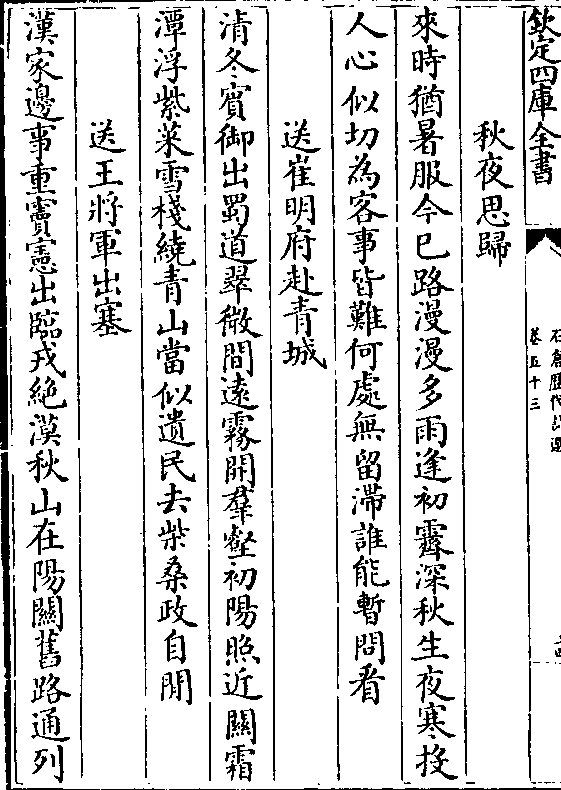 欽定四庫全書
石倉歷代詩選
卷五十三
秋夜思歸
來時猶暑服今已路漫漫多雨逢初霽深秋生夜寒投
人心似切為客事皆難何處無留滯誰能暫問看
送崔明府赴青城
清冬賓御出蜀道翠微間遠霧開羣壑初陽照近關霜
潭浮紫菜雪棧繞青山當似遺民去柴桑政自閒
送王將軍出塞
漢家邊事重竇憲出臨戎絶漠秋山在陽關舊路通列